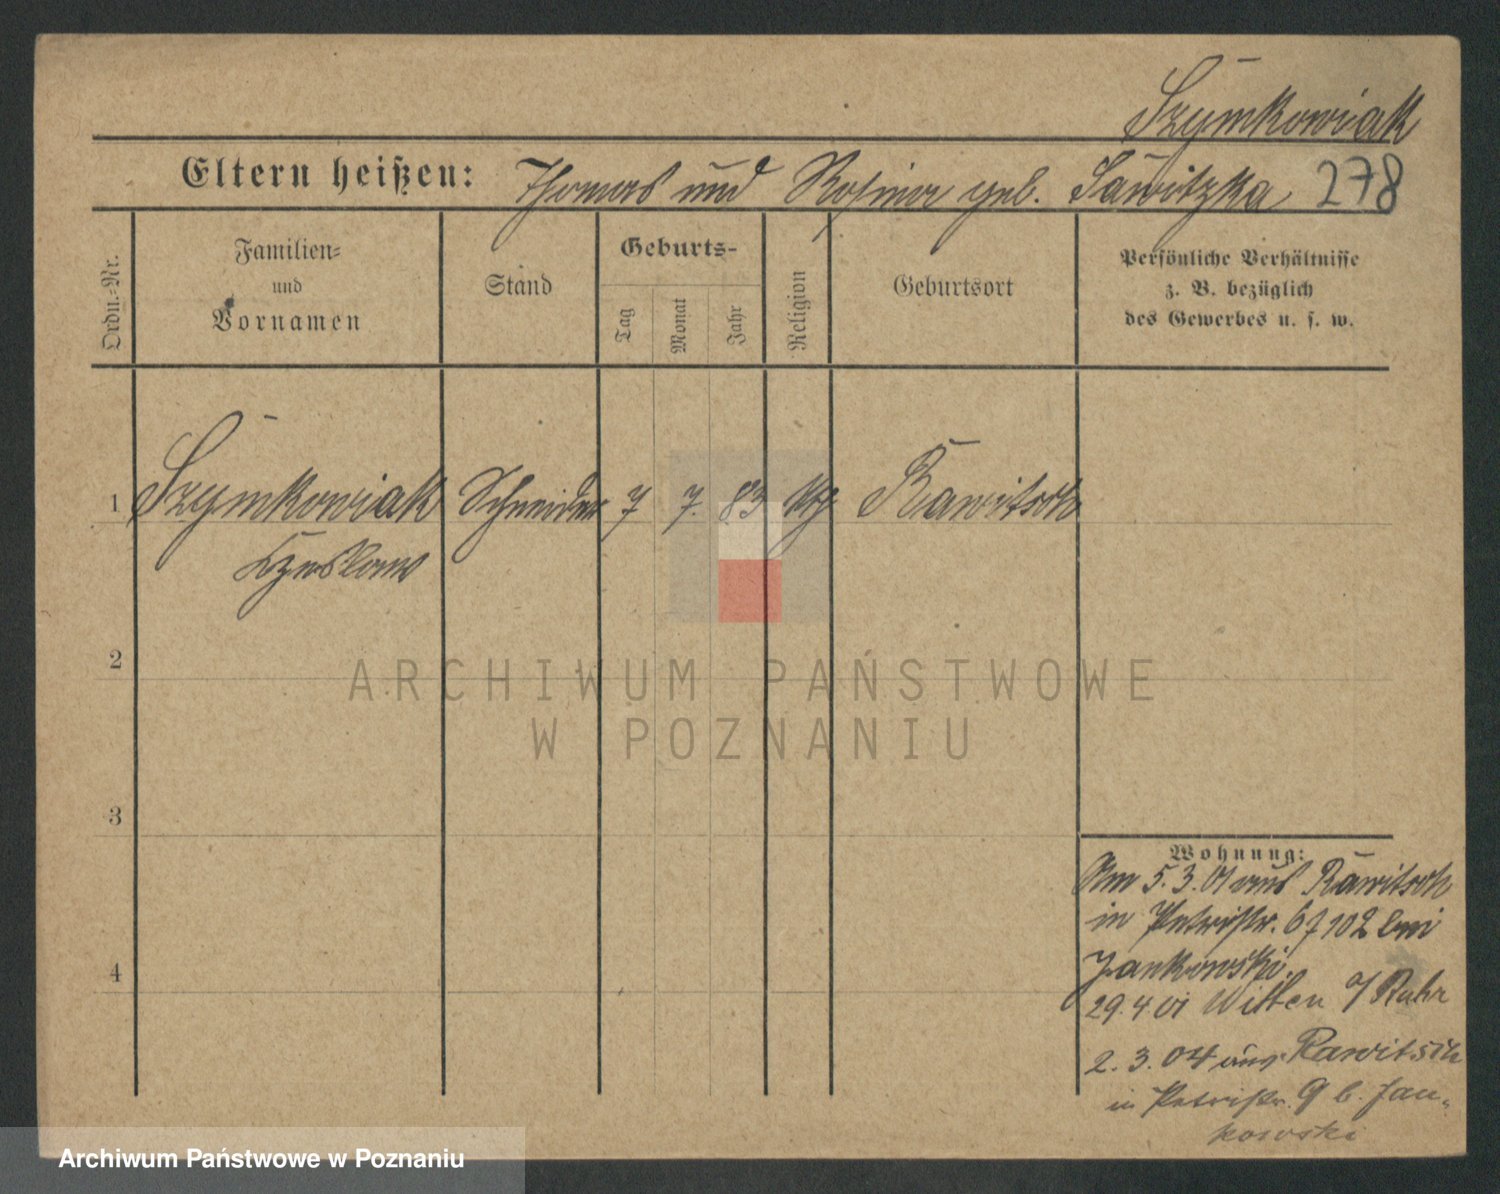 Szymkowiak
Eltern heißen: Thomas und Rosina geb. Sawitzka 278
Ordn.-Nr.
Familien-
und
Vornamen
Stand
Geburts-
Tag
Monat
Jahr
Religion
Geburtsort
Persönliche Verhältnisse
z. B. bezüglich
des Gewerbes u. s. w.
1 Szymkowiak Schneider 7 7. 83 kth Rawitsch
Czeslaw
2
3
4
Wohnung:
Am 5.3.01 aus Rawitsch
in Petristr. 102 bei
Jankowski.
29.4 01 Witten a/Ruhr
2.3.04 aus Rawitsch
in Petristr. 9 b. Jan-
kowski
ARCHIWUM PAŃSTWOWE
W POZNANIU
Archiwum Państwowe w Poznaniu